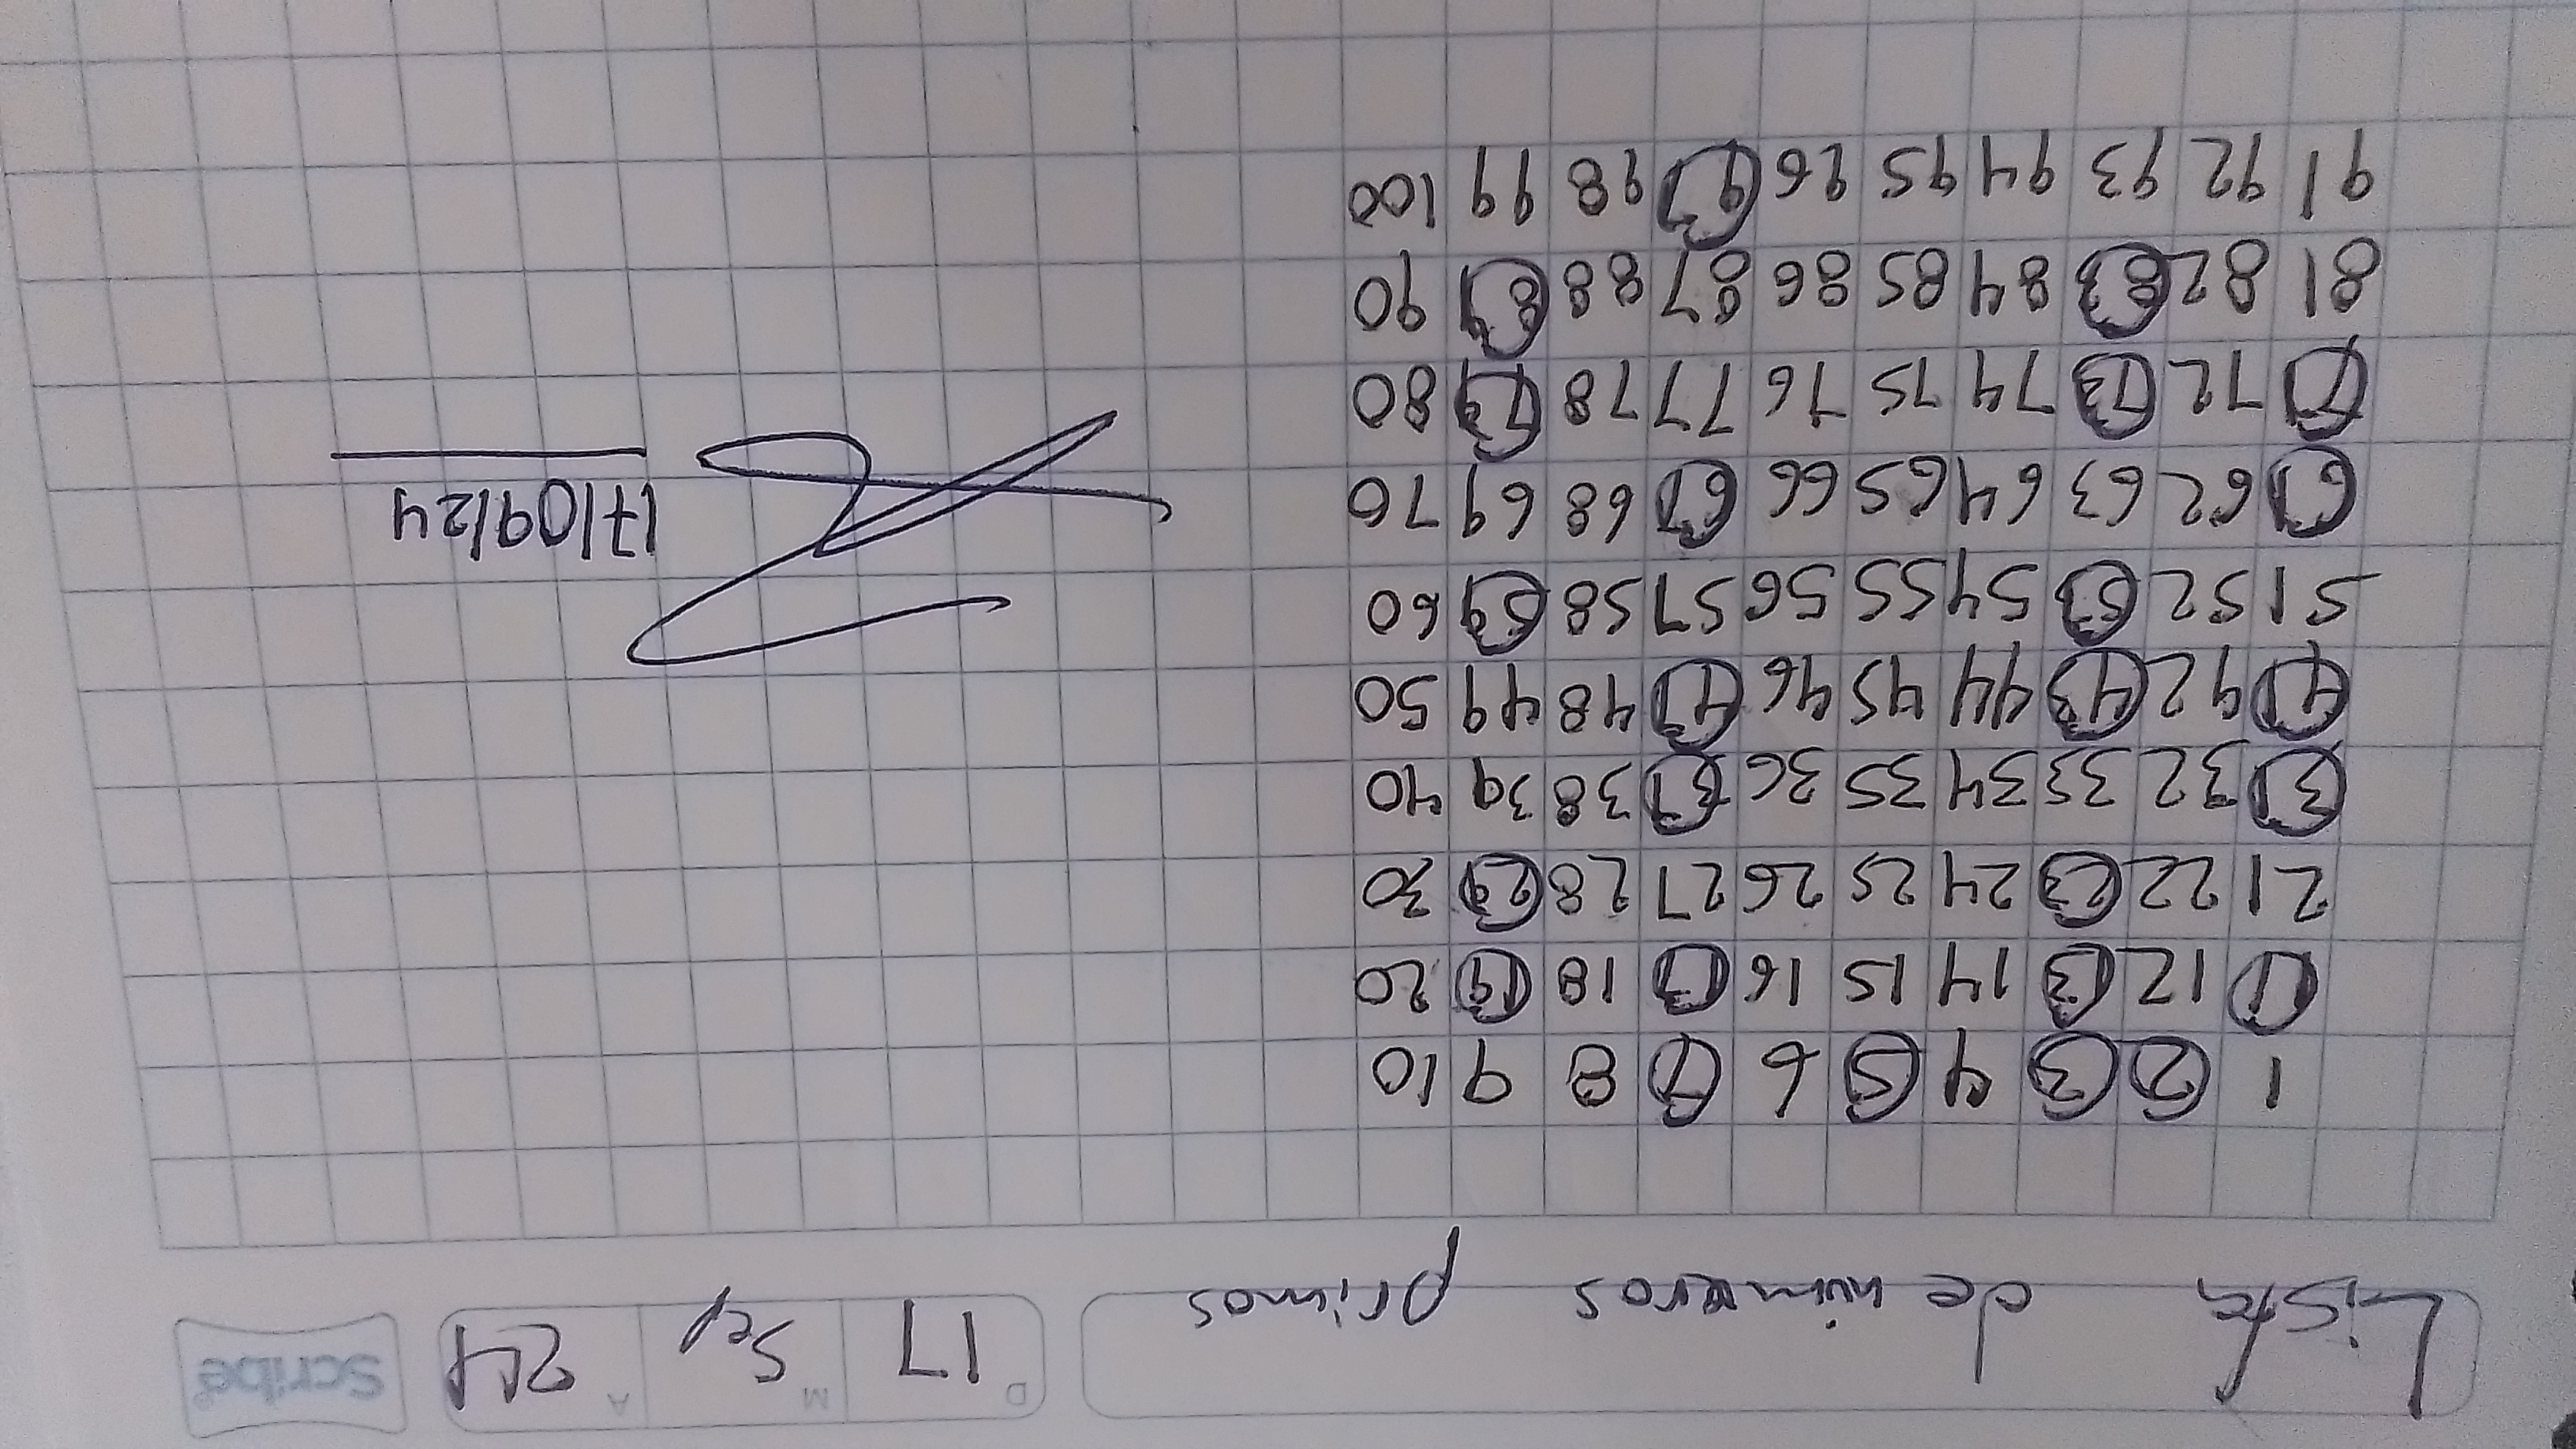 Lista de números primos
D 17 M Sep A 24
Scribe
1 2 3 4 5 6 7 8 9 10
11 12 13 14 15 16 17 18 19 20
21 22 23 24 25 26 27 28 29 30
31 32 33 34 35 36 37 38 39 40
41 42 43 44 45 46 47 48 49 50
51 52 53 54 55 56 57 58 59 60
61 62 63 64 65 66 67 68 69 70
71 72 73 74 75 76 77 78 79 80
81 82 83 84 85 86 87 88 89 90
91 92 93 94 95 96 97 98 99 100
17/09/24